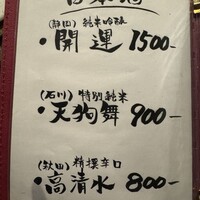 日本酒
(静岡) 純米吟醸
・開運 1500-
(石川) 特別純米
・天狗舞 900-
(秋田) 精撰辛口
・高清水 800-